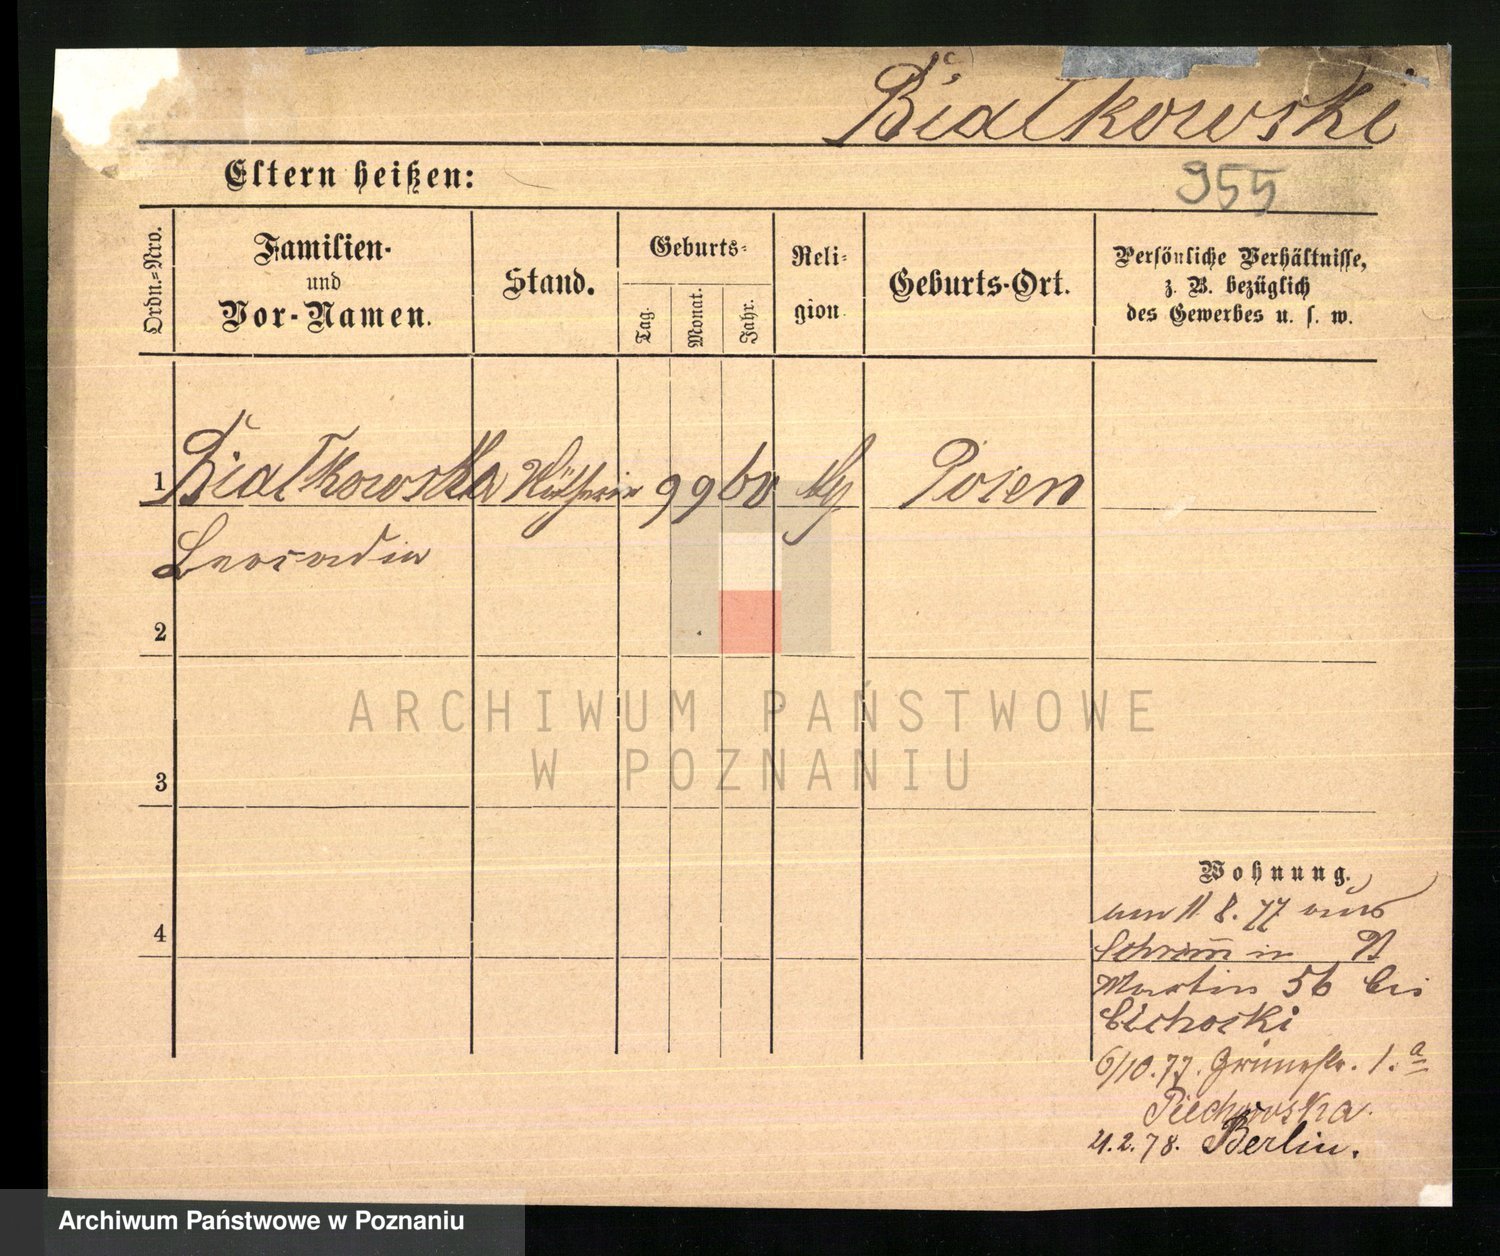 Białkowski
Eltern heißen:
955
Ordn.=Nro.
Familien-
und
Vor-Namen.
Stand.
Geburts=
Tag.
Monat.
Jahr.
Reli=
gion
Geburts-Ort.
Persönliche Verhältnisse,
z. B. bezüglich
des Gewerbes u. s. w.
1 Białkowska 9 9 60 Posen
Leocadia
2
ARCHIWUM PAŃSTWOWE
W POZNANIU
3
Wohnung.
am 11 8. 77 aus
4
Schrim̄ in St
Martin 56 bei
Cichoski
6/10. 77. Grünestr. 1. a
Piechowska
21. 2. 78. Berlin.
Archiwum Państwowe w Poznaniu